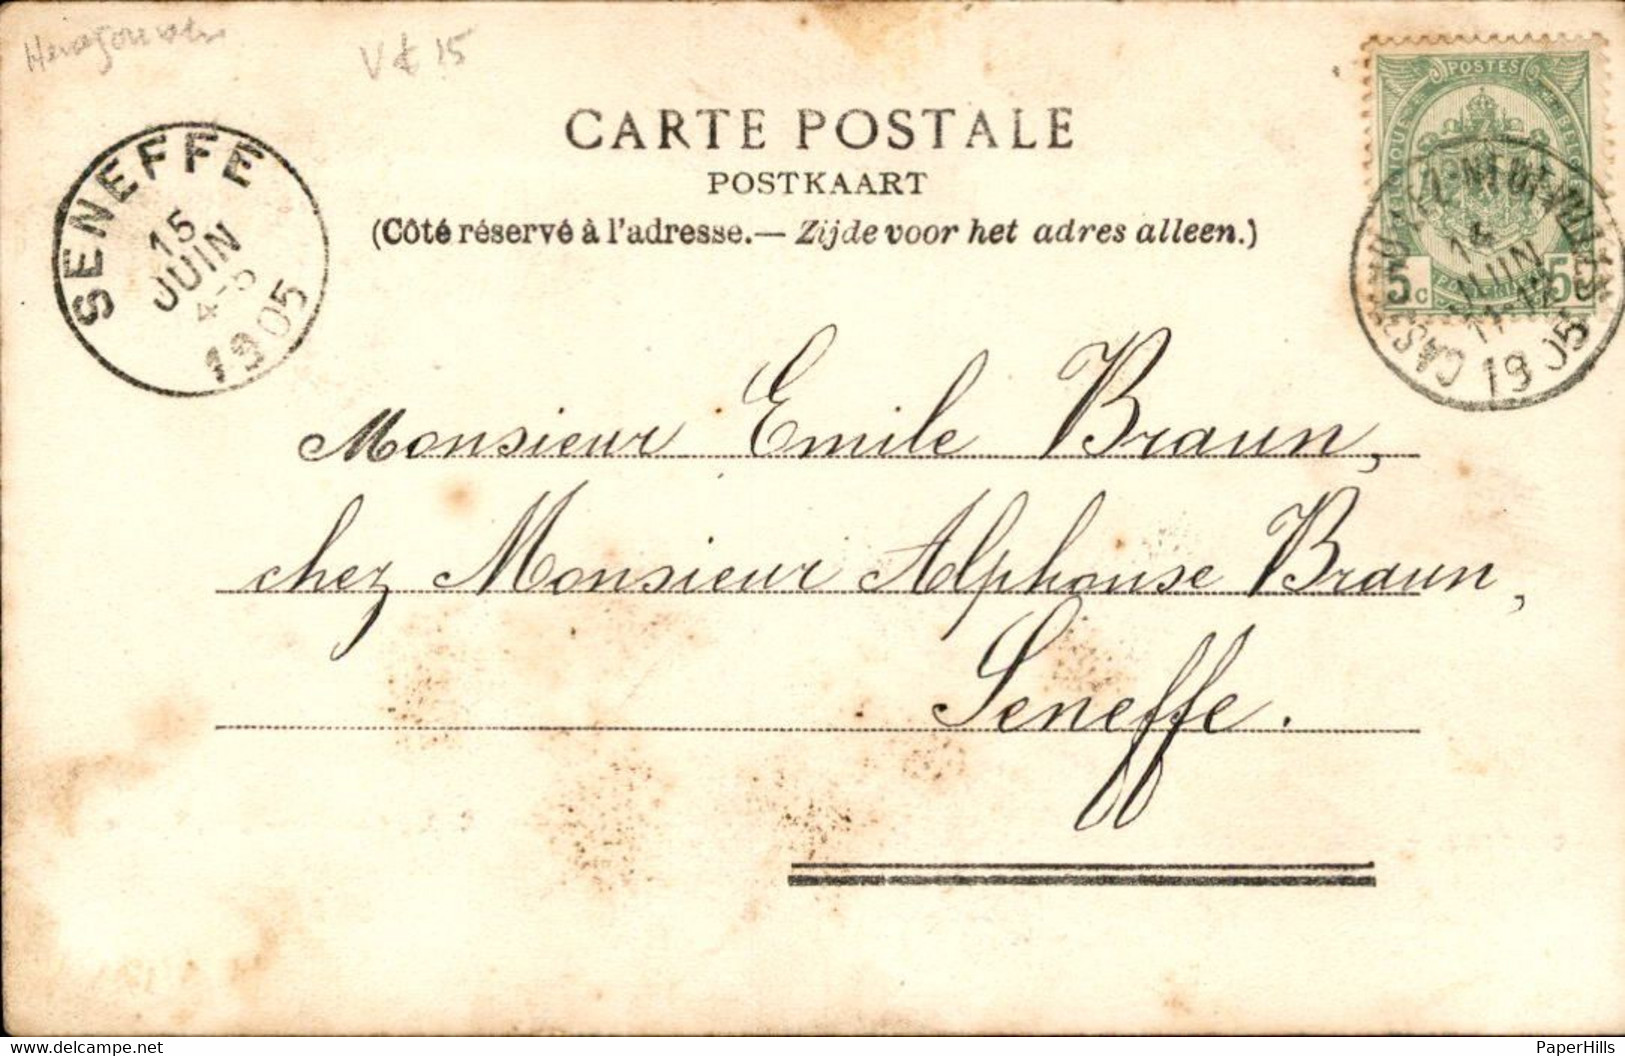 V & 15
CARTE POSTALE
POSTKAART
(Côté réservé à l'adresse.— Zijde voor het adres alleen.)
SENEFFE
15
JUIN
4-5
1905
POSTES
5c 5c
14
JUIN
11-12
1905
Monsieur Emile Braun,
chez Monsieur Alphonse Braun,
Seneffe.
www.delcampe.net
PaperHills